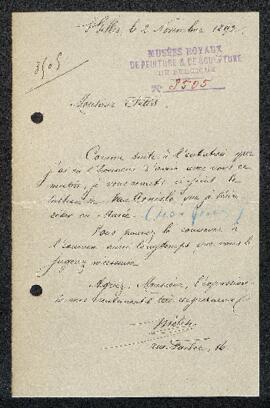 St Gilles, le 2 Novembre 1893.
MUSÉES ROYAUX
DE PEINTURE & DE SCULPTURE
DE BELGIQUE
No 3505
3505
Monsieur Fétis
Comme suite à l'entretien que
j'ai eu l'honneur d'avoir avec vous ce
matin, je vous remets ci-joint le
tableau de
Vous pouvez le conserver à
l'examen aussi longtemps que vous le
jugerez nécessaire.
Agréez, Monsieur, l'expression
de mes sentiments
16